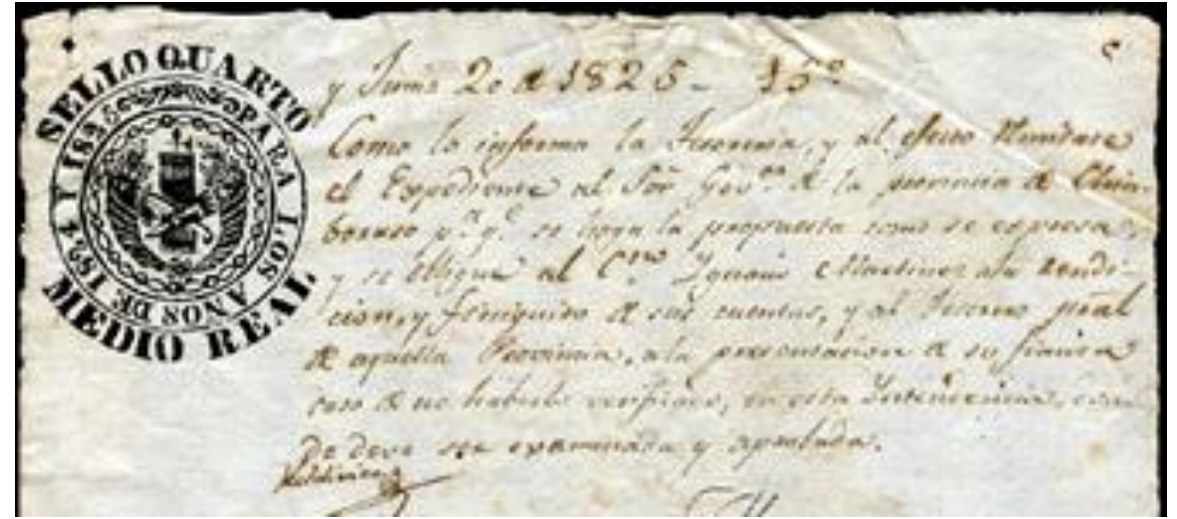 SELLO QUARTO
PARA LOS AÑOS DE 1824 Y 182
MEDIO REAL
y Junio 20 de 1825 - 15º
Como lo informa la Tesoreria, y al efecto Remitase
el Expediente al Sor Govor de la provincia de Chim-
borazo pa qe se haga la propuesta como se expresa,
y se obligue al Cno Ignacio Martinez ala rendi-
cion, y finiquito de sus cuentas, y al Tesorero
de aquella Provincia, ala presentacion de su fianza
caso de no haberla verificado, en esta Intendencia,
de deve ser examinada y aprobada.